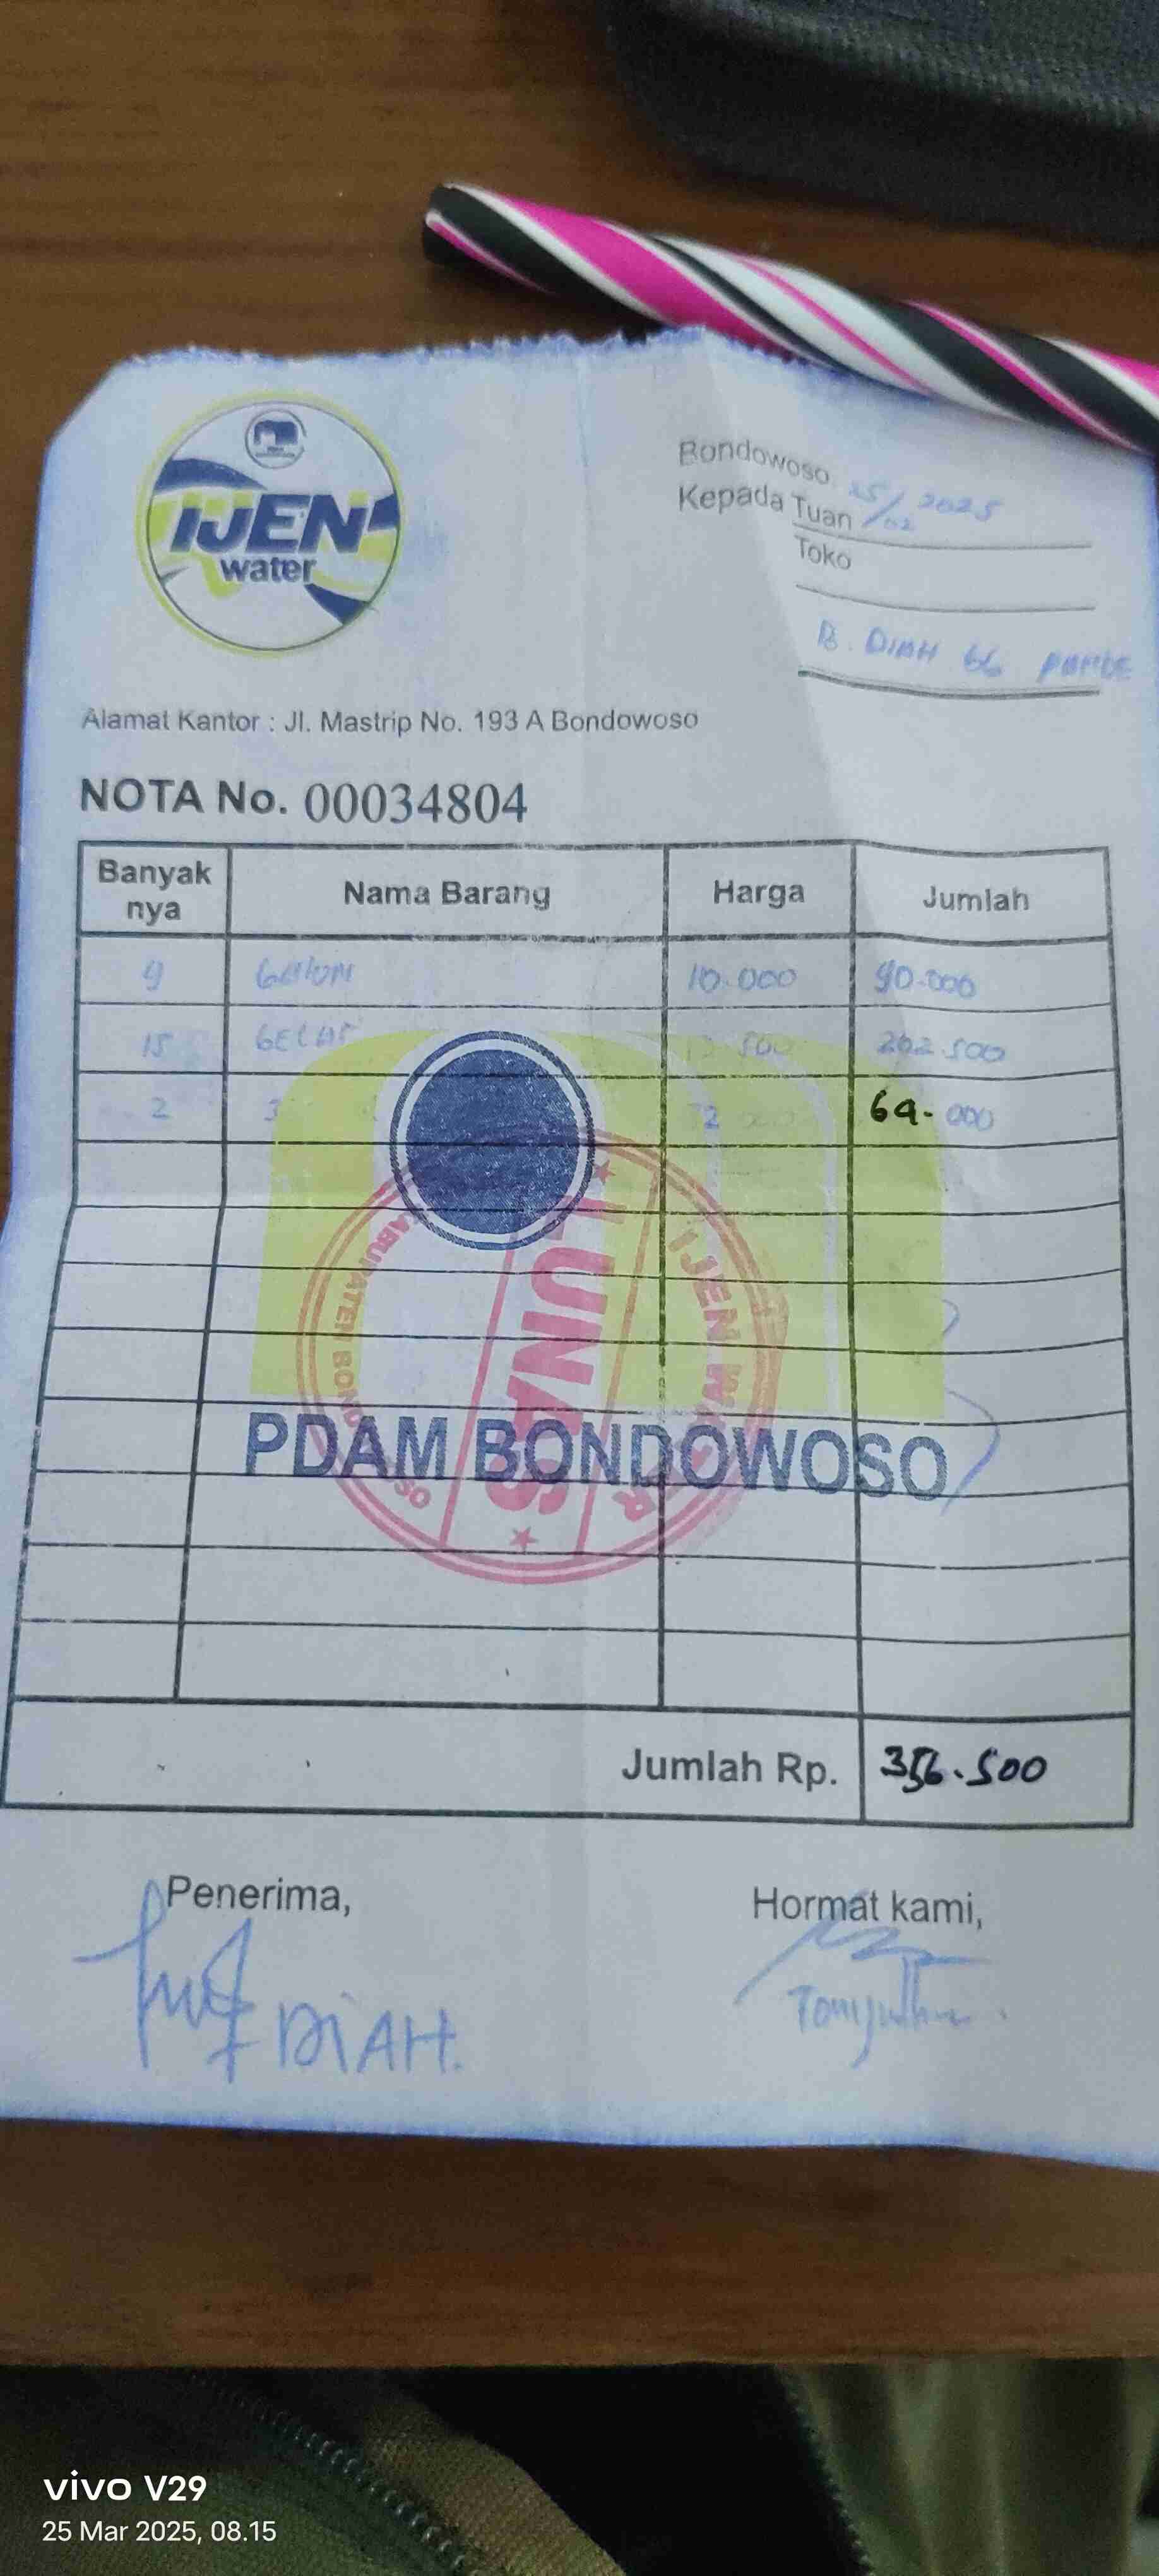 IJEN
water
Bondowoso, 25/02 2025
Kepada Tuan
Toko
B. DIAH 66
Alamat Kantor : Jl. Mastrip No. 193 A Bondowoso
NOTA No. 00034804
Banyak nya Nama Barang Harga Jumlah
9 GALON 10.000 90.000
15 GELAS 500 202.500
2 3 2 64.000
LUNAS
IJEN WATER
KABUPATEN BONDOWOSO
PDAM BONDOWOSO
Jumlah Rp. 356.500
Penerima, Hormat kami,
DIAH.
vivo V29
25 Mar 2025, 08.15